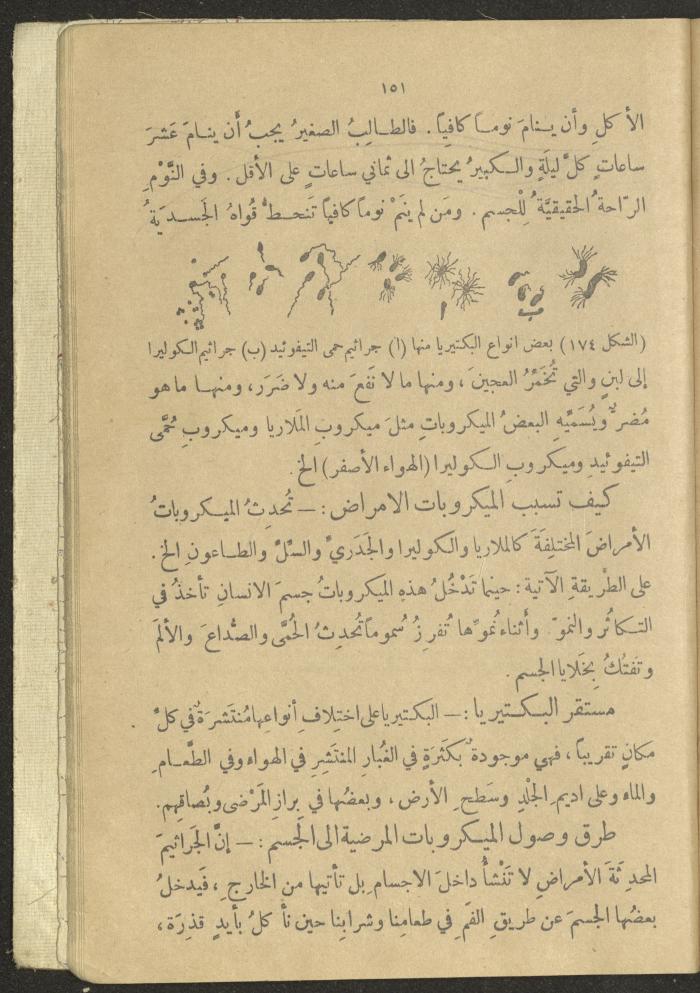 ١٥١
الأكلِ وأن ينامَ نوماً كافياً. فالطالبُ الصغيرُ يجبُ أَن ينامَ عَشرَ
ساعاتٍ كلَّ ليلَةٍ والكبيرُ يحتاجُ الى ثماني ساعاتٍ على الأقل. وفي النَّوْمِ
الرّاحةُ الحقيقيَّةُ لِلْجسم. ومَن لم ينَمْ نوماً كافياً تَنحطُّ قُواهُ الجَسديةُ
(الشكل ١٧٤) بعض انواع البكتيريا منها (ا) جراثيم حمى التيفوئيد (ب) جراثيم الكوليرا
إلى لبنٍ والتي تُخَمِّرُ العجينَ، ومنها ما لا نَفعَ منه ولا ضَرَر، ومنها ما هو
مُضرٌّ ويُسَمِّيهِ البعضُ الميكروباتِ مثلَ ميكروبِ المَلاريا وميكروبِ حُمَّى
التيفوئيدِ وميكروبِ الكوليرا (الهواء الأصفر) الخ.
كيف تسبب الميكروبات الامراض: — تُحدِثُ الميكروباتُ
الأمراضَ المختلِفَةَ كالملاريا والكوليرا والجَدَريِّ والسِّلِّ والطاعونِ الخ.
على الطَّريقةِ الآتية: حينما تَدْخُلُ هذهِ الميكروباتُ جسمَ الانسانِ تأخذُ في
التكاثُرِ والنموّ وأَثناءَ نُموِّها تُفرِزُ سُموماً تُحدِثُ الحُمَّى والصُّداعَ والألَمَ
وتَفتُكُ بِخَلايا الجسم.
مستقر البكتيريا: — البكتيريا على اختِلافِ أنواعِها مُنتَشرَةٌ في كلِّ
مكانٍ تقريباً، فهي موجودةٌ بكَثرَةٍ في الغُبارِ المنتَشِرِ في الهواءِ وفي الطَّعامِ
والماءِ وعلى اديمِ الجِلْدِ وسَطحِ الأرض، وبعضُها في برازِ المَرْضى وبُصاقِهم.
طرق وصول الميكروبات المرضية الى الجسم: — إنَّ الجَراثيمَ
المحدِثَةَ الأمراضِ لا تَنْشأُ داخلَ الاجسامِ بل تأتيها من الخارجِ، فَيدخلُ
بعضُها الجسمَ عن طريقِ الفَمِ في طعامِنا وشرابِنا حين نأكلُ بأيدٍ قذِرَة،